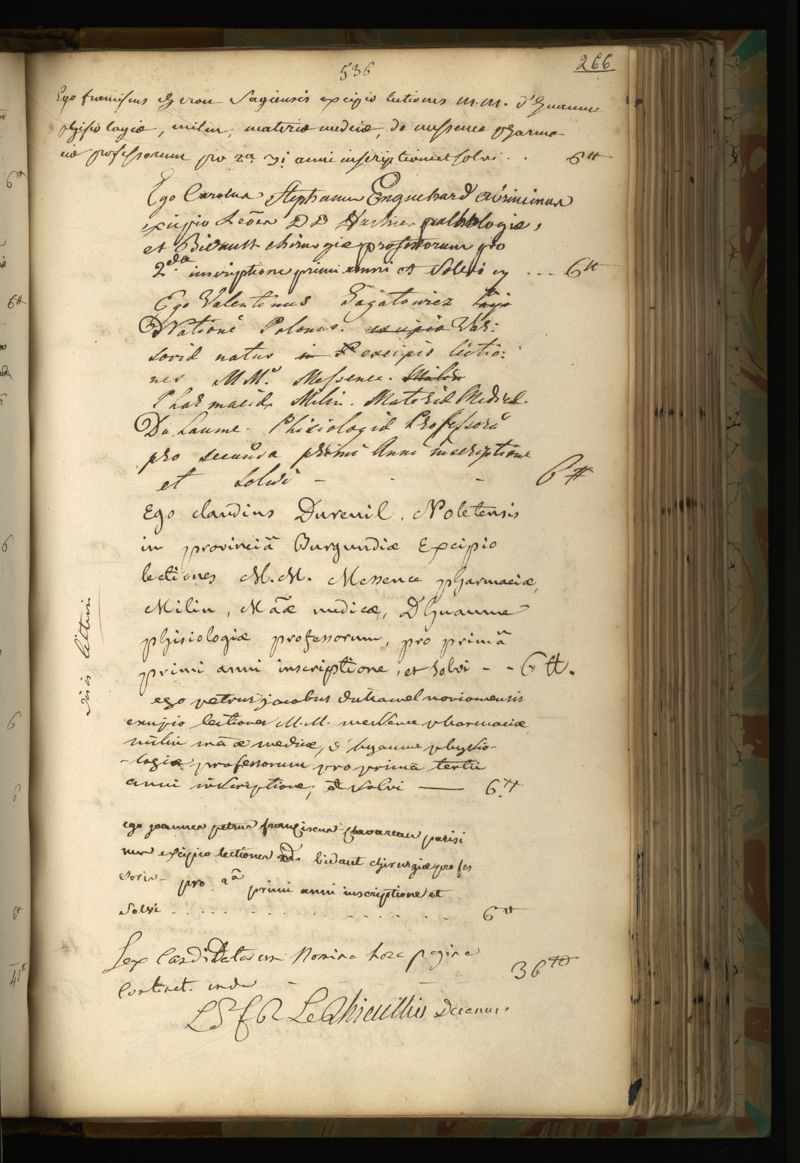 536
266
Ego franciscus Sagiensis excipio lectiones M.M. d'huaume
phisiologiæ, milin, materiæ medicæ, de messence pharma
ciæ professorum pro 2a 3i anni inscriptione et solvi . . 6tt
Ego Carolus Stephanus Enguehard
excipio DD pathologiæ,
et Bidault chirurgiæ professorum pro
2da inscriptione primi anni et Solvi ... 6tt
Ego Valentinus Gagatowicz
Natione Polonus. excipio Var:
sovid natus in excipio lectio:
nes MM. Messence. Milin
Pharmacid Milin. Materid Medicd.
Du Laume. Phisiologid Professorũ
pro secunda primi Anni inscriptione
et solvi - - - 6tt
Ego claudius Dureuil, Noletensis
in provinciâ Burgundiæ Excipio
lectiones M.M. Messence pharmaciæ,
Milin, Mãæ medicæ, D'huaume
phisiologiæ professorum, pro primâ
primi anni inscriptione, et solvi - - 6tt.
ego petrus jacobus duhamel noviomensis
excipio lectiones M.M. messence pharmaciæ
milin mãæ medicæ, d'huaume physio-
-logiæ professorum pro prima tertii
anni inscriptione; et solvi — 6tt
ego joannes petrus franciscus Chavareau parisi
nus excipio lectiones bidaut chirurgiæ profes
soris pro 2a primi anni inscriptione et
solvi . . . . . . . . . . . 6tt
Sex Candidatorum Nomina hæc pagina
Continet. inde - - - 36tt
Le Thieullier Decanus